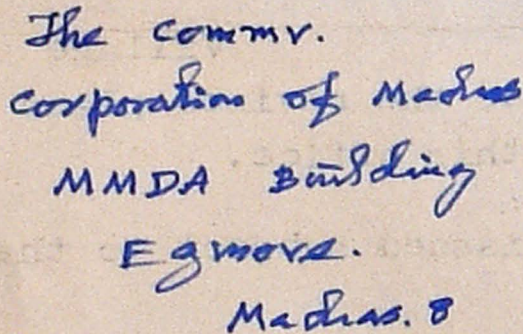 The Commr.
Corporation of Madras
MMDA Building
Egmore.
Madras. 8